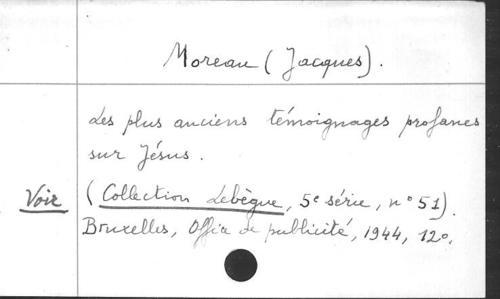 Moreau (Jacques).
Les plus anciens témoignages profanes
sur Jésus.
Voir (Collection Lebègue, 5e série, n° 51).
Bruxelles, Office de publicité, 1944, 12°.